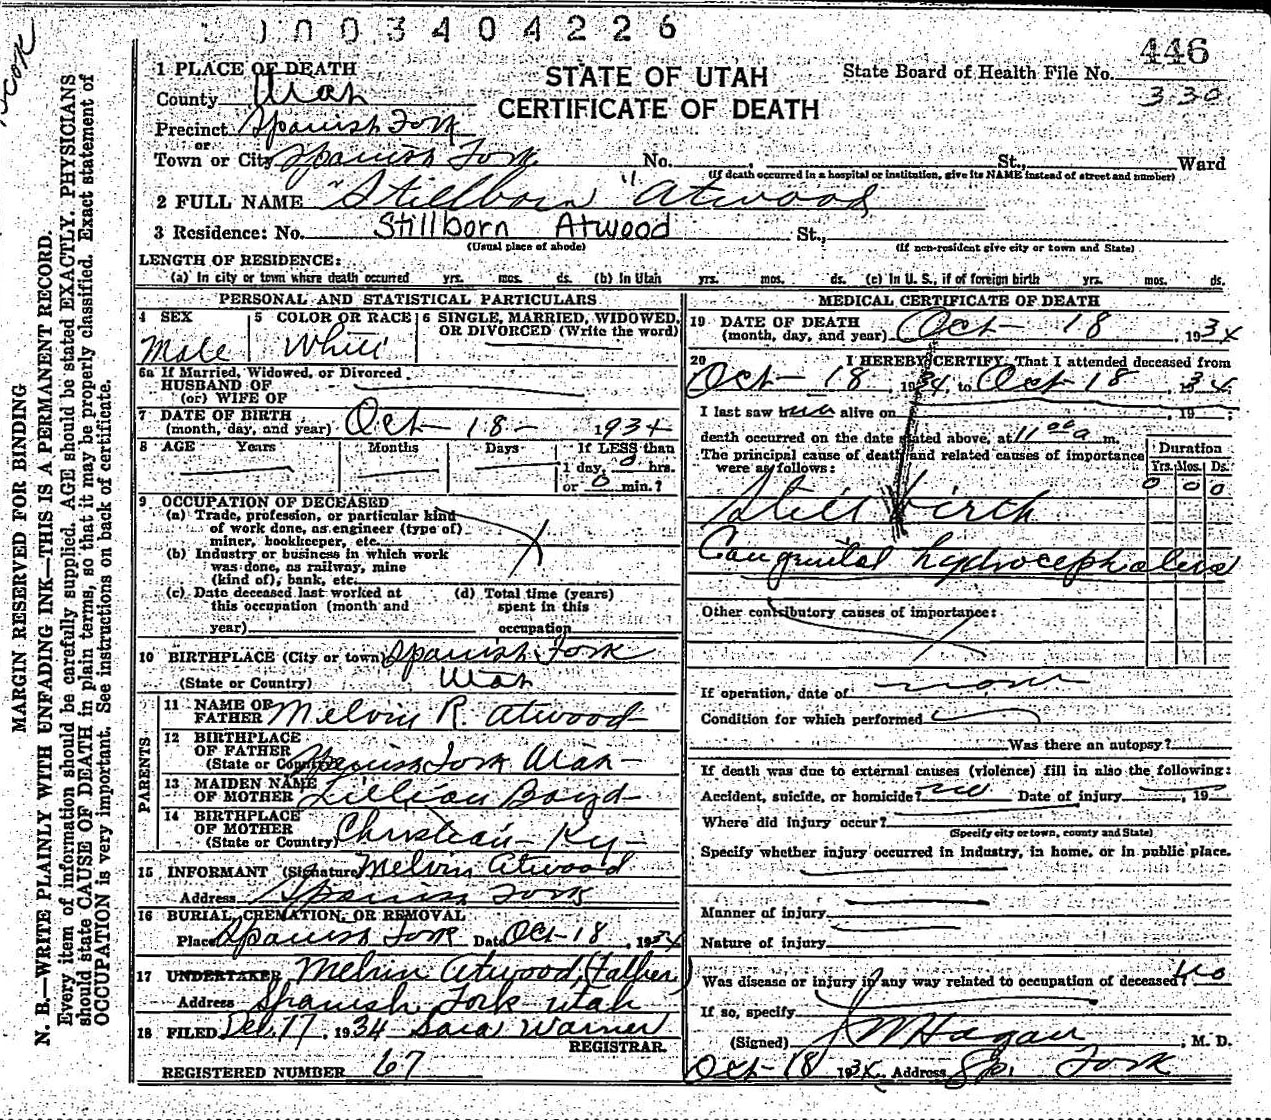 0 0 3 4 0 4 2 2 6
446
1 PLACE OF DEATH
STATE OF UTAH
State Board of Health File No.
County Utah
330
CERTIFICATE OF DEATH
Precinct Spanish Fork
or
Town or City Spanish Fork No. , St., Ward
(If death occurred in a hospital or institution, give its NAME instead of street and number)
2 FULL NAME "Stillborn" Atwood
3 Residence: No. Stillborn Atwood St.,
(Usual place of abode) (If non-resident give city or town and State)
LENGTH OF RESIDENCE:
(a) In city or town where death occurred yrs. mos. ds. (b) In Utah yrs. mos. ds. (c) In U. S., if of foreign birth yrs. mos. ds.
PERSONAL AND STATISTICAL PARTICULARS
4 SEX 5 COLOR OR RACE 6 SINGLE, MARRIED, WIDOWED, OR DIVORCED (Write the word)
Male White
6a If Married, Widowed, or Divorced
HUSBAND OF
(or) WIFE OF
7 DATE OF BIRTH
(month, day, and year) Oct - 18 - 1934
8 AGE Years Months Days If LESS than
1 day, 0 hrs.
or 0 min.?
9 OCCUPATION OF DECEASED
(a) Trade, profession, or particular kind
of work done, as engineer (type of)
miner, bookkeeper, etc.
(b) Industry or business in which work
was done, as railway, mine
(kind of), bank, etc.
(c) Date deceased last worked at (d) Total time (years)
this occupation (month and spent in this
year) occupation
10 BIRTHPLACE (City or town) Spanish Fork
(State or Country) Utah
PARENTS
11 NAME OF
FATHER Melvin R. Atwood
12 BIRTHPLACE
OF FATHER
(State or Country) Spanish Fork Utah
13 MAIDEN NAME
OF MOTHER Lillian Boyd
14 BIRTHPLACE
OF MOTHER
(State or Country) Christian - Ky -
15 INFORMANT (Signature) Melvin Atwood
Address Spanish Fork
16 BURIAL, CREMATION, OR REMOVAL
Place Spanish Fork Date Oct - 18, 1934
17 UNDERTAKER Melvin Atwood, (Father)
Address Spanish Fork Utah
18 FILED Dec. 17, 1934 Sara Warner
REGISTRAR.
REGISTERED NUMBER 67
MEDICAL CERTIFICATE OF DEATH
19 DATE OF DEATH
(month, day, and year) Oct - 18, 1934
20 I HEREBY CERTIFY, That I attended deceased from
Oct - 18, 1934, to Oct - 18, 34
I last saw him alive on , 19 ;
death occurred on the date stated above, at 11 00 a m.
The principal cause of death and related causes of importance
were as follows:
Duration
Yrs. Mos. Ds.
0 0 0
Still birth
Congenital hydrocephalus
Other contributory causes of importance:
If operation, date of none
Condition for which performed
Was there an autopsy?
If death was due to external causes (violence) fill in also the following:
Accident, suicide, or homicide? no Date of injury , 19
Where did injury occur?
(Specify city or town, county and State)
Specify whether injury occurred in industry, in home, or in public place.
Manner of injury
Nature of injury
Was disease or injury in any way related to occupation of deceased? No
If so, specify
(Signed) J W Hagan, M. D.
Oct - 18 1934 Address Sp. Fork
MARGIN RESERVED FOR BINDING
N. B.—WRITE PLAINLY WITH UNFADING INK—THIS IS A PERMANENT RECORD.
Every item of information should be carefully supplied. AGE should be stated EXACTLY. PHYSICIANS
should state CAUSE OF DEATH in plain terms, so that it may be properly classified. Exact statement of
OCCUPATION is very important. See instructions on back of certificate.